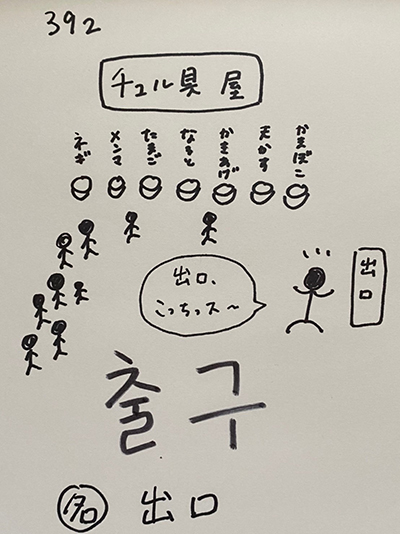 392
チュル具屋
ネギ メンマ たまご なると かきあげ 天かす かまぼこ
出口、
こっちっス～
出口
출구
名 出口